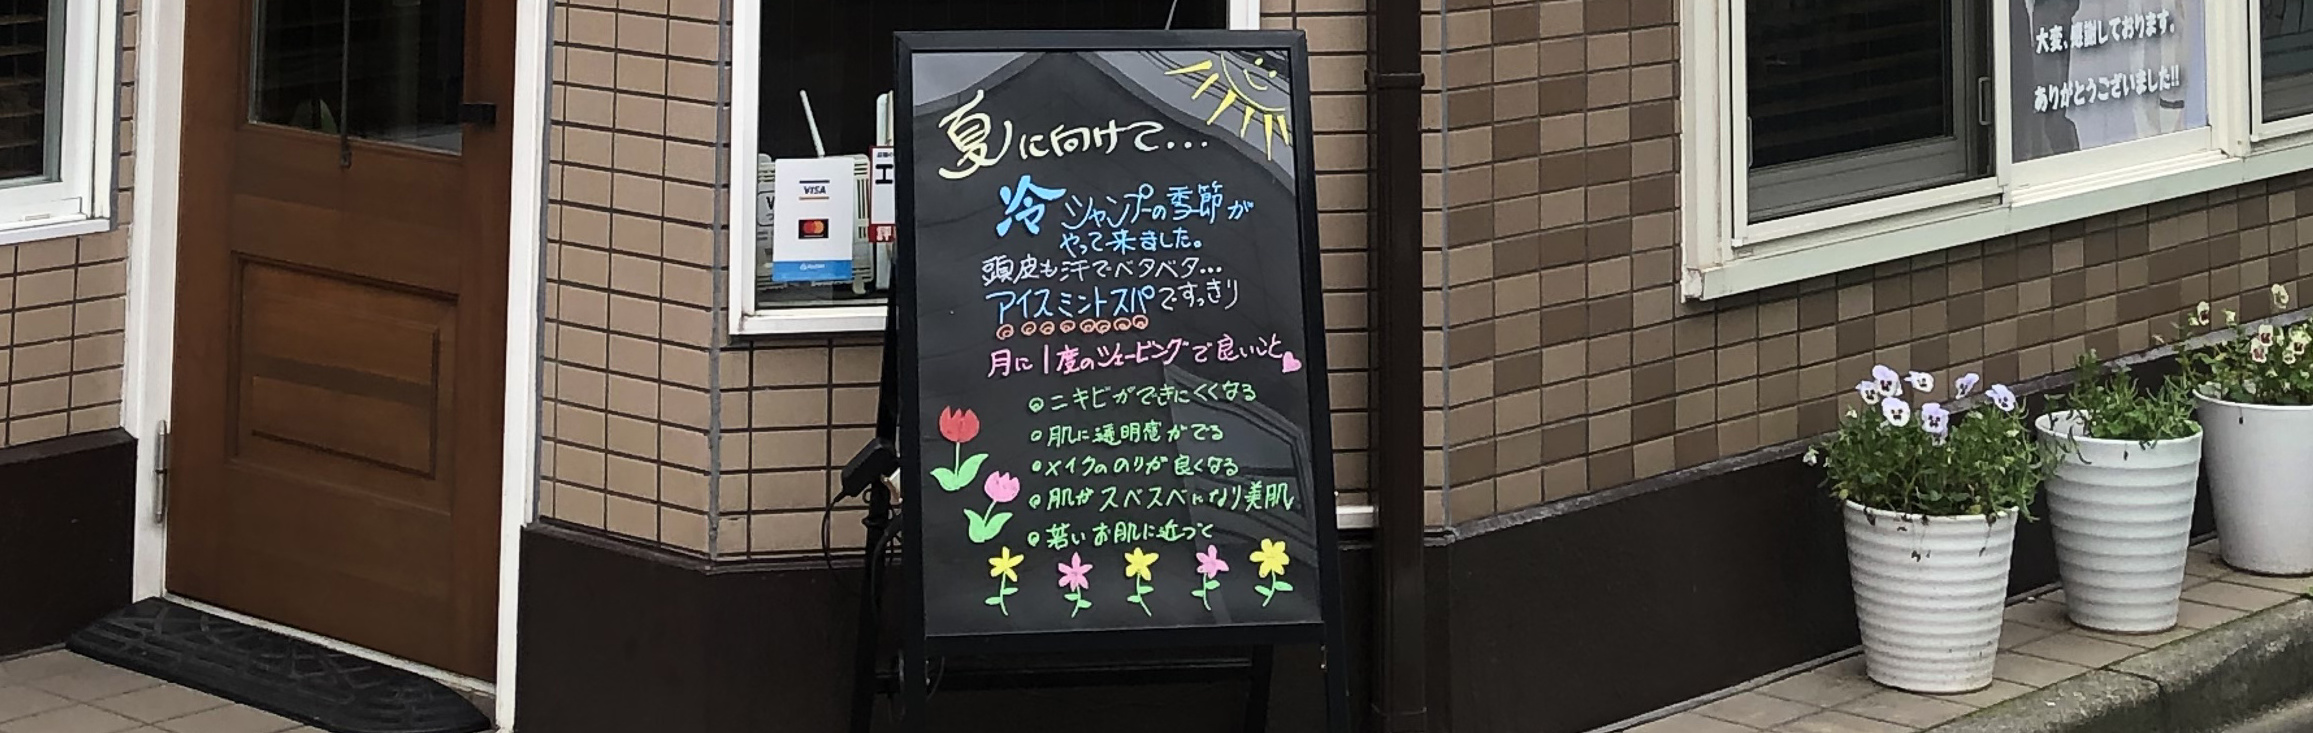 夏に向けて...
冷シャンプーの季節が
やって来ました。
頭皮も汗でベタベタ...
アイスミントスパですっきり
月に1度のシェービングで良いこと
ニキビができにくくなる
肌に透明感がでる
メイクののりが良くなる
肌がスベスベになり美肌
若いお肌に近づく
VISA
大変、感謝しております。
ありがとうございました!!